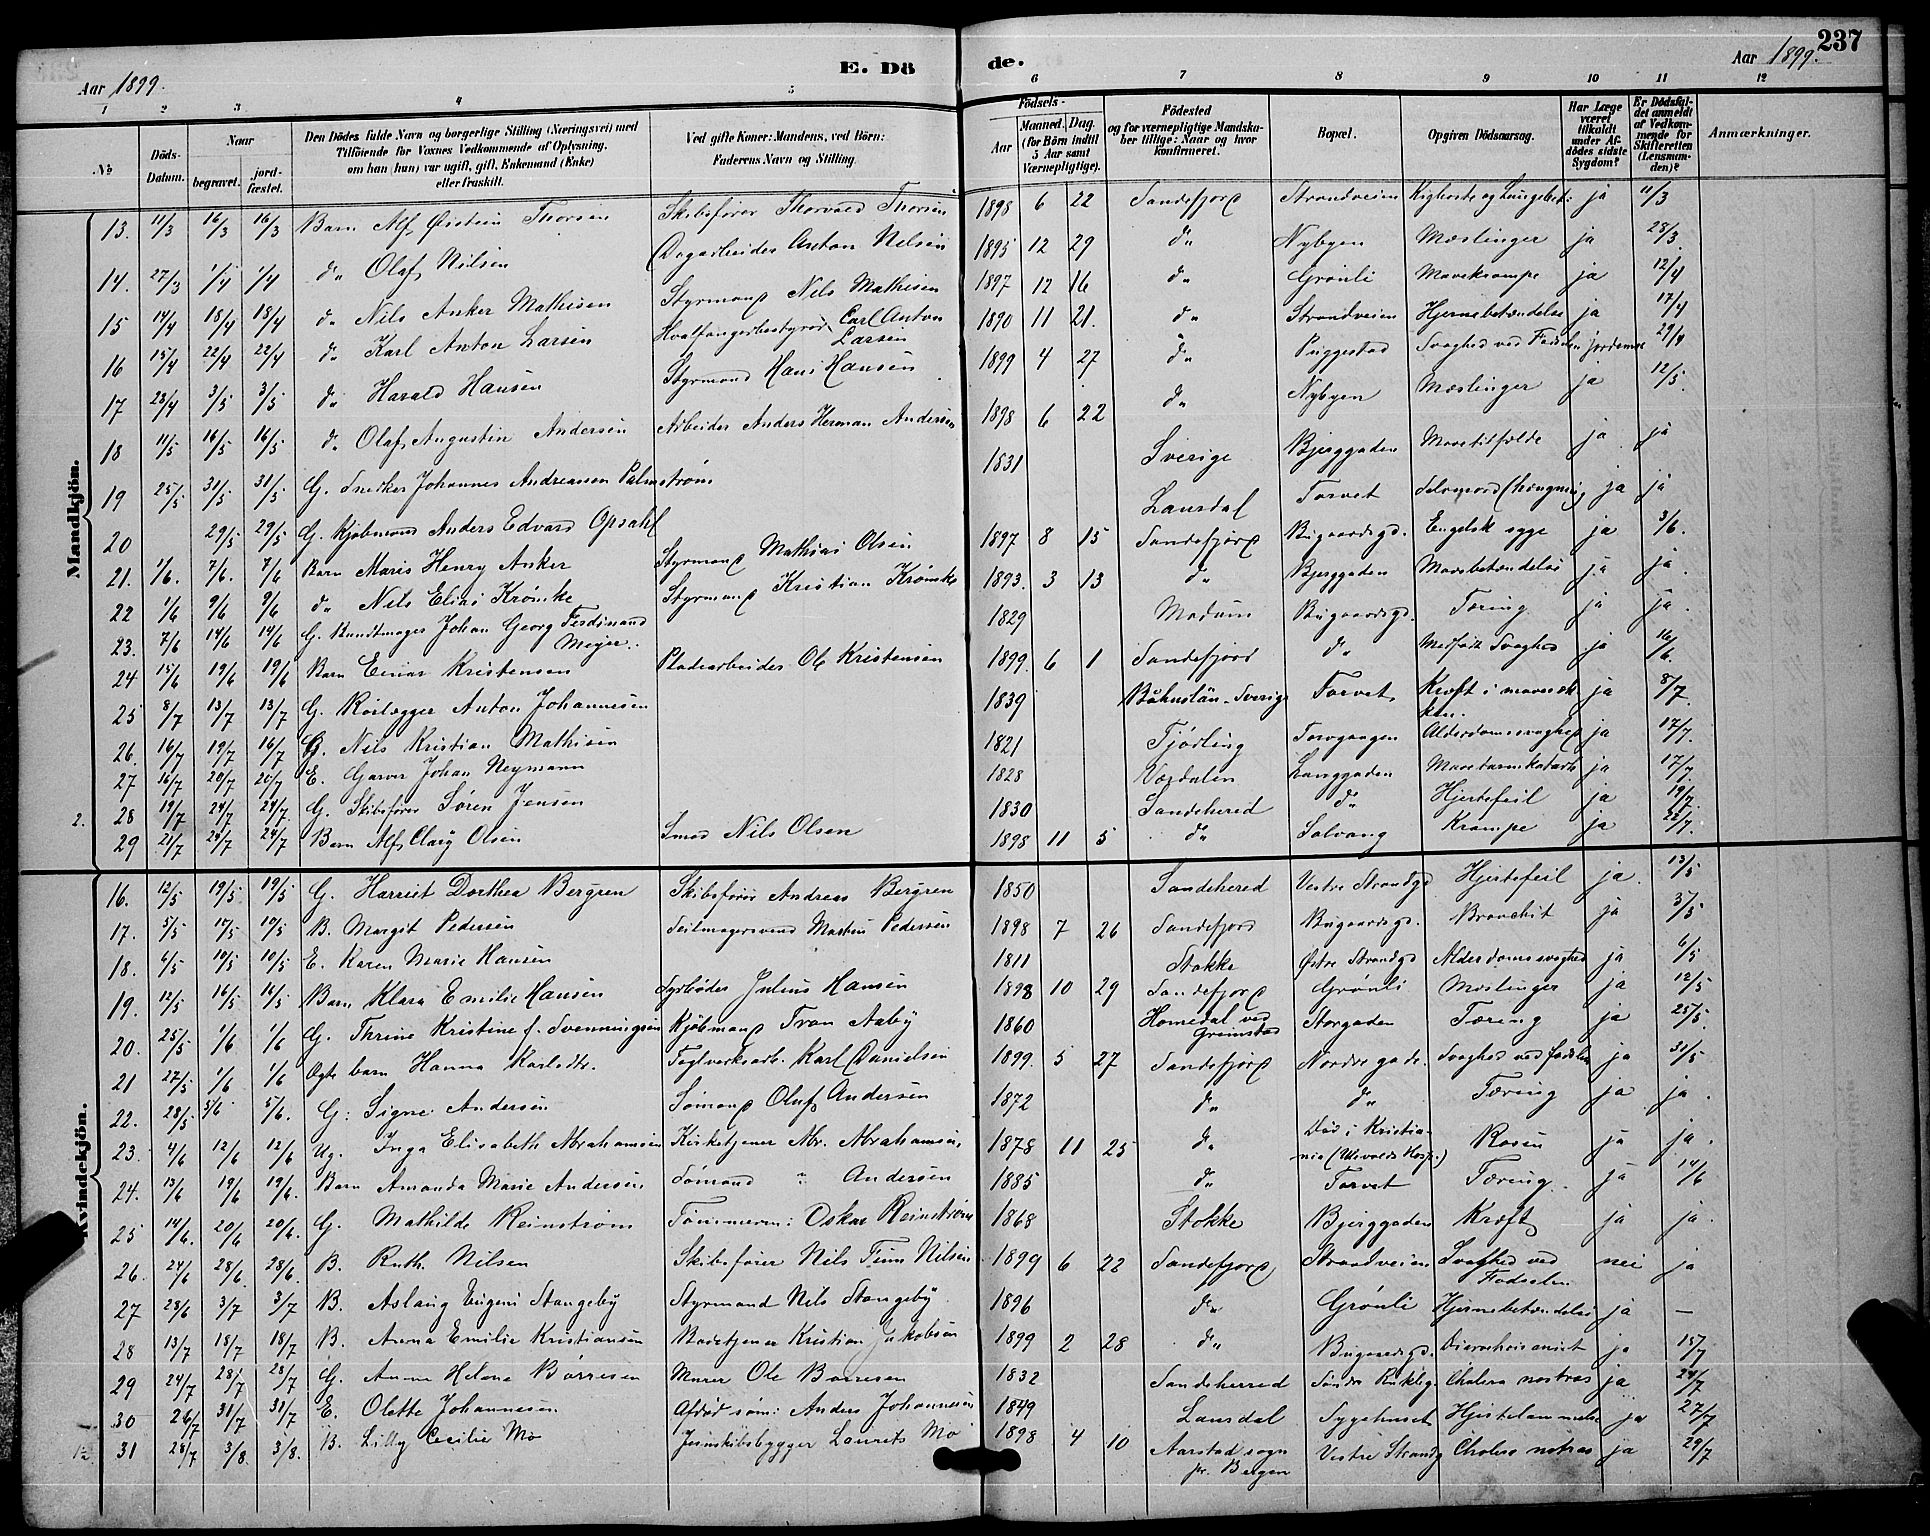 237
Aar 1899.
E. Dö
de.
Aar 1899.
1 2 3 4 5 6 7 8 9 10 11 12
No
Döds-Datum.
Naar
begravet.
jord-fæstet.
Den Dödes fulde Navn og borgerlige Stilling (Næringsvei) med Tilföiende for Voxnes Vedkommende af Oplysning, om han (hun) var ugift, gift, Enkemand (Enke) eller fraskilt.
Ved gifte Koner: Mandens, ved Börn: Faderens Navn og Stilling.
Födsels-
Aar
Maaned. Dag.
(for Börn indtil 5 Aar samt Værnepligtige).
Födested og for værnepligtige Mandskaber tillige: Naar og hvor konfirmeret.
Bopæl.
Opgiven Dödsaarsag.
Har Læge været tilkaldt under Afdödes sidste Sygdom?
Er Dödsfaldet anmeldt af Vedkommende for Skifteretten (Lensmanden)?
Anmærkninger.
Mandkjön.
13. 11/3 16/3 16/3 Barn Alf Øistein Thorsen Skibsfører Thorvald Thorsen 1898 6 22 Sandefjord Strandveien Kighoste og Lungebet: ja 11/3
14. 27/3 1/4 1/4 do Olaf Nilsen Dagarbeider Anton Nilsen 1895 12 29 do Nybyen Mæslinger ja 28/3.
15 14/4 18/4 18/4 do Nils Anker Mathisen Styrmand Nils Mathisen 1897 12 16 do Grønli Mavekrampe ja 12/4
16 15/4 22/4 22/4 do Karl Anton Larsen Hvalfangerbestyrer Carl Anton Larsen 1890 11 21. do Strandveien Hjernebetændelse ja 17/4
17 28/4 3/5 3/5 do Harald Hansen Styrmand Hans Hansen 1899 4 27 do Puggestad Svaghed ved Fødselen jordemor 29/4
18 11/5 16/5 16/5 do Olaf Augustin Andersen Arbeider Anders Herman Andersen 1898 6 22 do Nybyen Mæslinger ja 12/5.
19 25/5 31/5 31/5 G. Snedker Johannes Andreassen Palmstrøm 1831 Sverige Bjerggaden Mavetilfælde ja ja
20 29/5 29/5 G. Kjøbmand Anders Edvard Opsahl Laurdal Torvet Selvmord (hængning) ja ja
21. 1/6. 7/6. 7/6 Barn Maris Henry Anker Styrmand Mathias Olsen 1897 8 15 Sandefjord Bugaardsgd. Engelsk syge ja 3/6.
22 1/6 9/6 9/6 do Nils Elias Krømke Styrmand Kristian Krømke 1893. 3 13 do Bjerggaden Mavebetændelse ja ja.
23. 7/6 14/6 14/6 G. Bundtmager Johan Georg Ferdinand Meyer. 1829 Modum Bugaardsgd. Tæring ja ja.
24 15/6 19/6 19/6 Barn Einar Kristensen Pladearbeider Ole Kristensen 1899. 6 1 Sandefjord do Medfødt Svaghed ja 16/6.
25 8/7 13/7 13/7 G. Anton Johannesen 1839 Båhuslän-Sverige Torvet Kræft i mavesækken. ja 8/7.
26. 16/7 19/7 16/7 G. Nils Kristian Mathisen 1821 Tjødling Torvgangen Alderdomssvaghed ja 17/7.
27 16/7 20/7 20/7 E. Garver Johan Neymann 1828 Langgaden Mavetarmkatarh ja 17/7
2. 28 19/7 24/7 24/7. G. Skibsfører Søren Jensen 1830 Sandeherred do Hjertefeil ja 19/7.
29 21/7 24/7 24/7 Barn Alf Olsen Smed Nils Olsen 1898 11 5 do Solvang Krampe ja 22/7.
Kvindekjön.
16. 12/5 19/5 19/5 G. Harriet Dorthea Bergren Skibsfører Andreas Bergren 1850 Sandeherred Vestre Strandgd Hjertefeil ja. 13/5
17. 5/5 10/5 10/5 B. Margit Pedersen Seilmagersvend Martin Pedersen 1898 7 26 Sandefjord Bugaardsgd. Bronchit ja 3/5
18. 6/5 10/5 10/5 E. Karen Marie Hansen 1811 Stokke Østre Strandgd Alderdomssvaghed ja 6/5
19. 12/5 16/5 16/5 Barn Klara Emilie Hansen Fyrbøder Julius Hansen 1898 10 29 Sandefjord Grønli Mæslinger ja 12/5
20. 25/5 1/6 1/6 G. Thrine Kristine f. Svenningsen Kjøbmand Tron Aaby 1860 Homedal ved Grimstad Storgaden Tæring ja 25/5.
21 27/5 1/6 1/6 Ægte barn Hanna Karlsdtr. Teglverksarb. Karl Danielsen 1899. 5 27 Sandefjord Nordre gade. Svaghed ved fødselen ja 31/5
22. 28/5 5/6 5/6. G: Signe Andersen Sømand Oluf Andersen 1872 do do Tæring ja ja.
23. 4/6 12/6 12/6 Ug. Inga Elisabeth Abrahamsen Kirketjener Abr. Abrahamsen 1878 11 25 do Død i Kristiania (Ullevolds Hosp.) Rosen ja ja.
24. 13/6 19/6 19/6. Barn Amanda Marie Andersen Sømand " Andersen 1885 do Torvet Tæring. ja 14/6
25 14/6. 20/6 20/6. G. Mathilde Reinstrøm Tømmerm: Oskar Reinstrøm 1868 Stokke Bjerggaden Kræft ja ja.
26. 24/6 28/6 28/6. B. Ruth Nilsen Skibsfører Nils Finn Nilsen 1899 6 22 Sandefjord Strandveien Svaghed ved Fødselen nei ja
27 28/6 3/7 3/7 B. Aslaug Eugeni Stangeby Styrmand Nils Stangeby 1896 do Grønli Hjernebetændelse ja —
28 13/7 18/7 18/7 B. Anna Emilie Kristiansen Badetjener Kristian Jakobsen 1899 2 28 do Bugaardsgd. ja 15/7
29 24/7 28/7 28/7 G. Anna Helene Børresen Murer Ole Børresen 1832 Sandeherred Søndre Cholera nostras ja 24/7
30 26/7 31/7 31/7 E. Olette Johannesen Afdød søm: Anders Johannesen 1849 Laurdal Sygehuset Hjertelammelse ja 27/7
31 28/7 3/8 3/8. B. Lilly Cecilie Mo Jernskibsbygger Laurits Mo 1898 4 10 Aarstad sogn pr. Bergen Vestre Strandg Cholera nostras ja 29/7